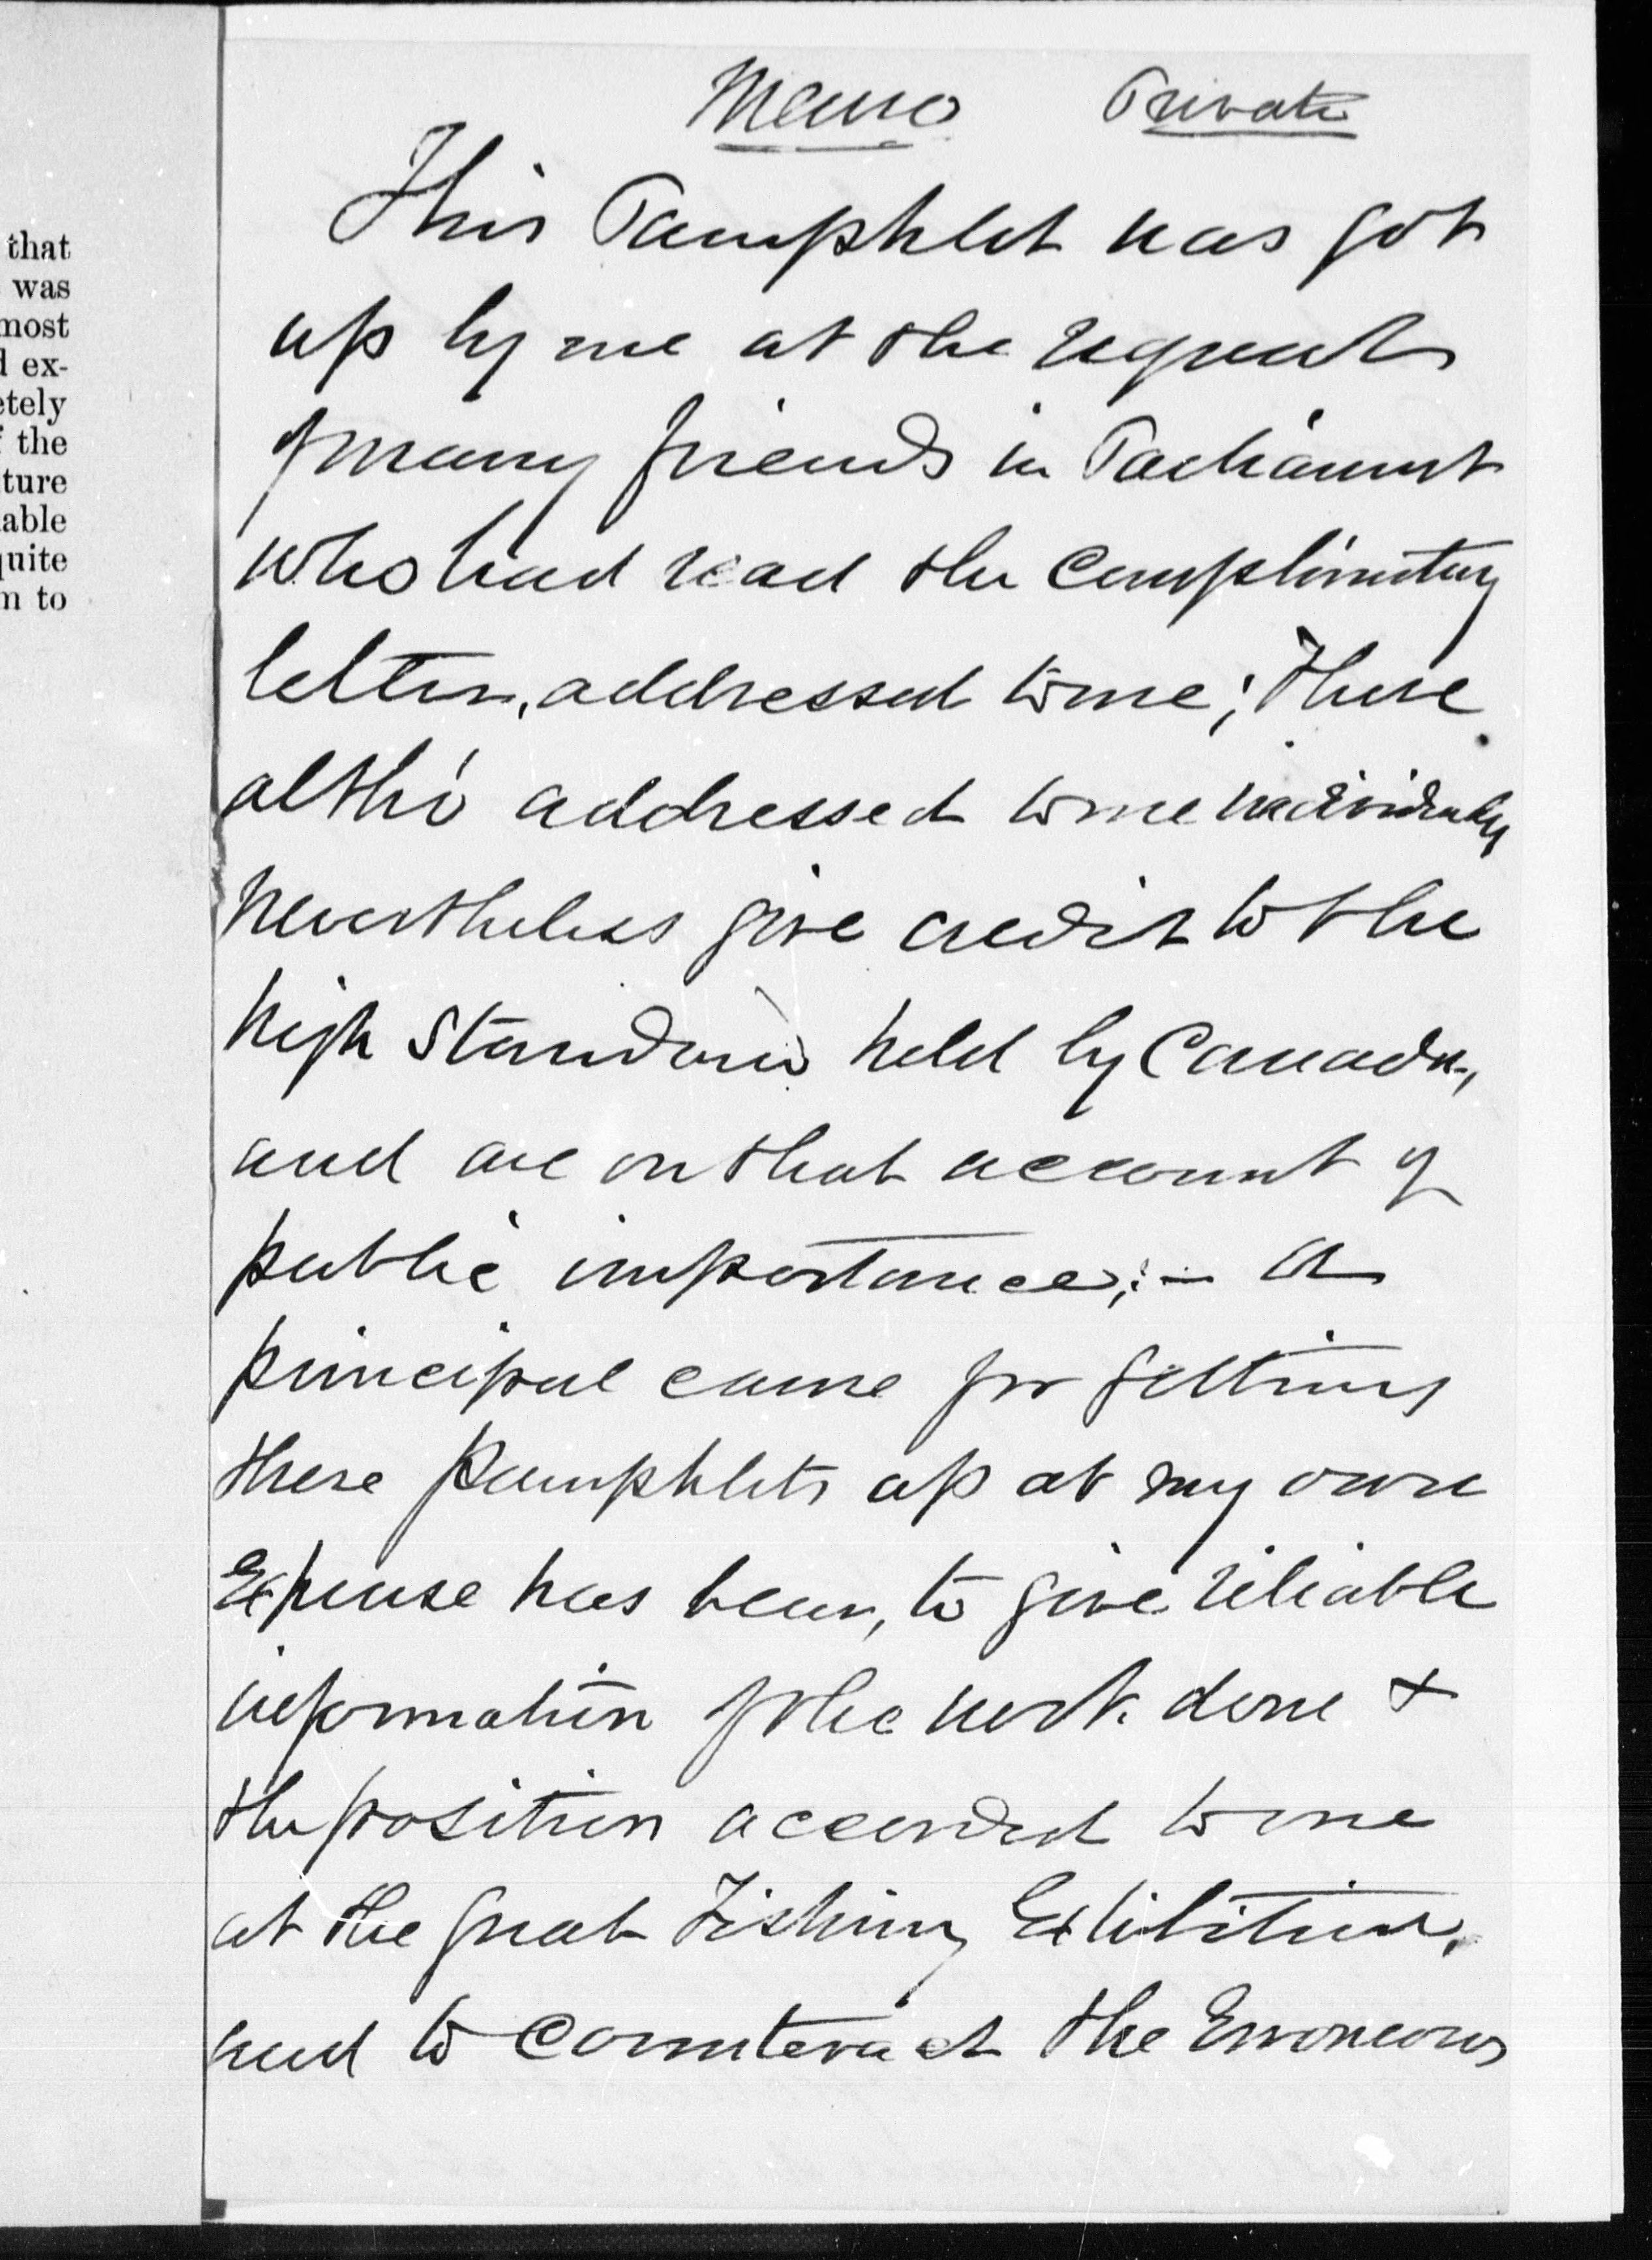 that
was
most
d ex-
etely
f the
ture
lable
quite
m to
Memo Private
This Pamphlet was got
up by me at the request
of many friends in Parliament
who had read the Complimentary
letters, addressed to me; these
altho' addressed to me individually
nevertheless give credit to the
high Standard held by Canada,
and are on that account of
public importance;— a
principal cause for getting
these pamphlets up at my own
Expense has been, to give reliable
information of the work done &
the position accorded to me
at the great Fishing Exhibition,
and to Counteract the Erroneous